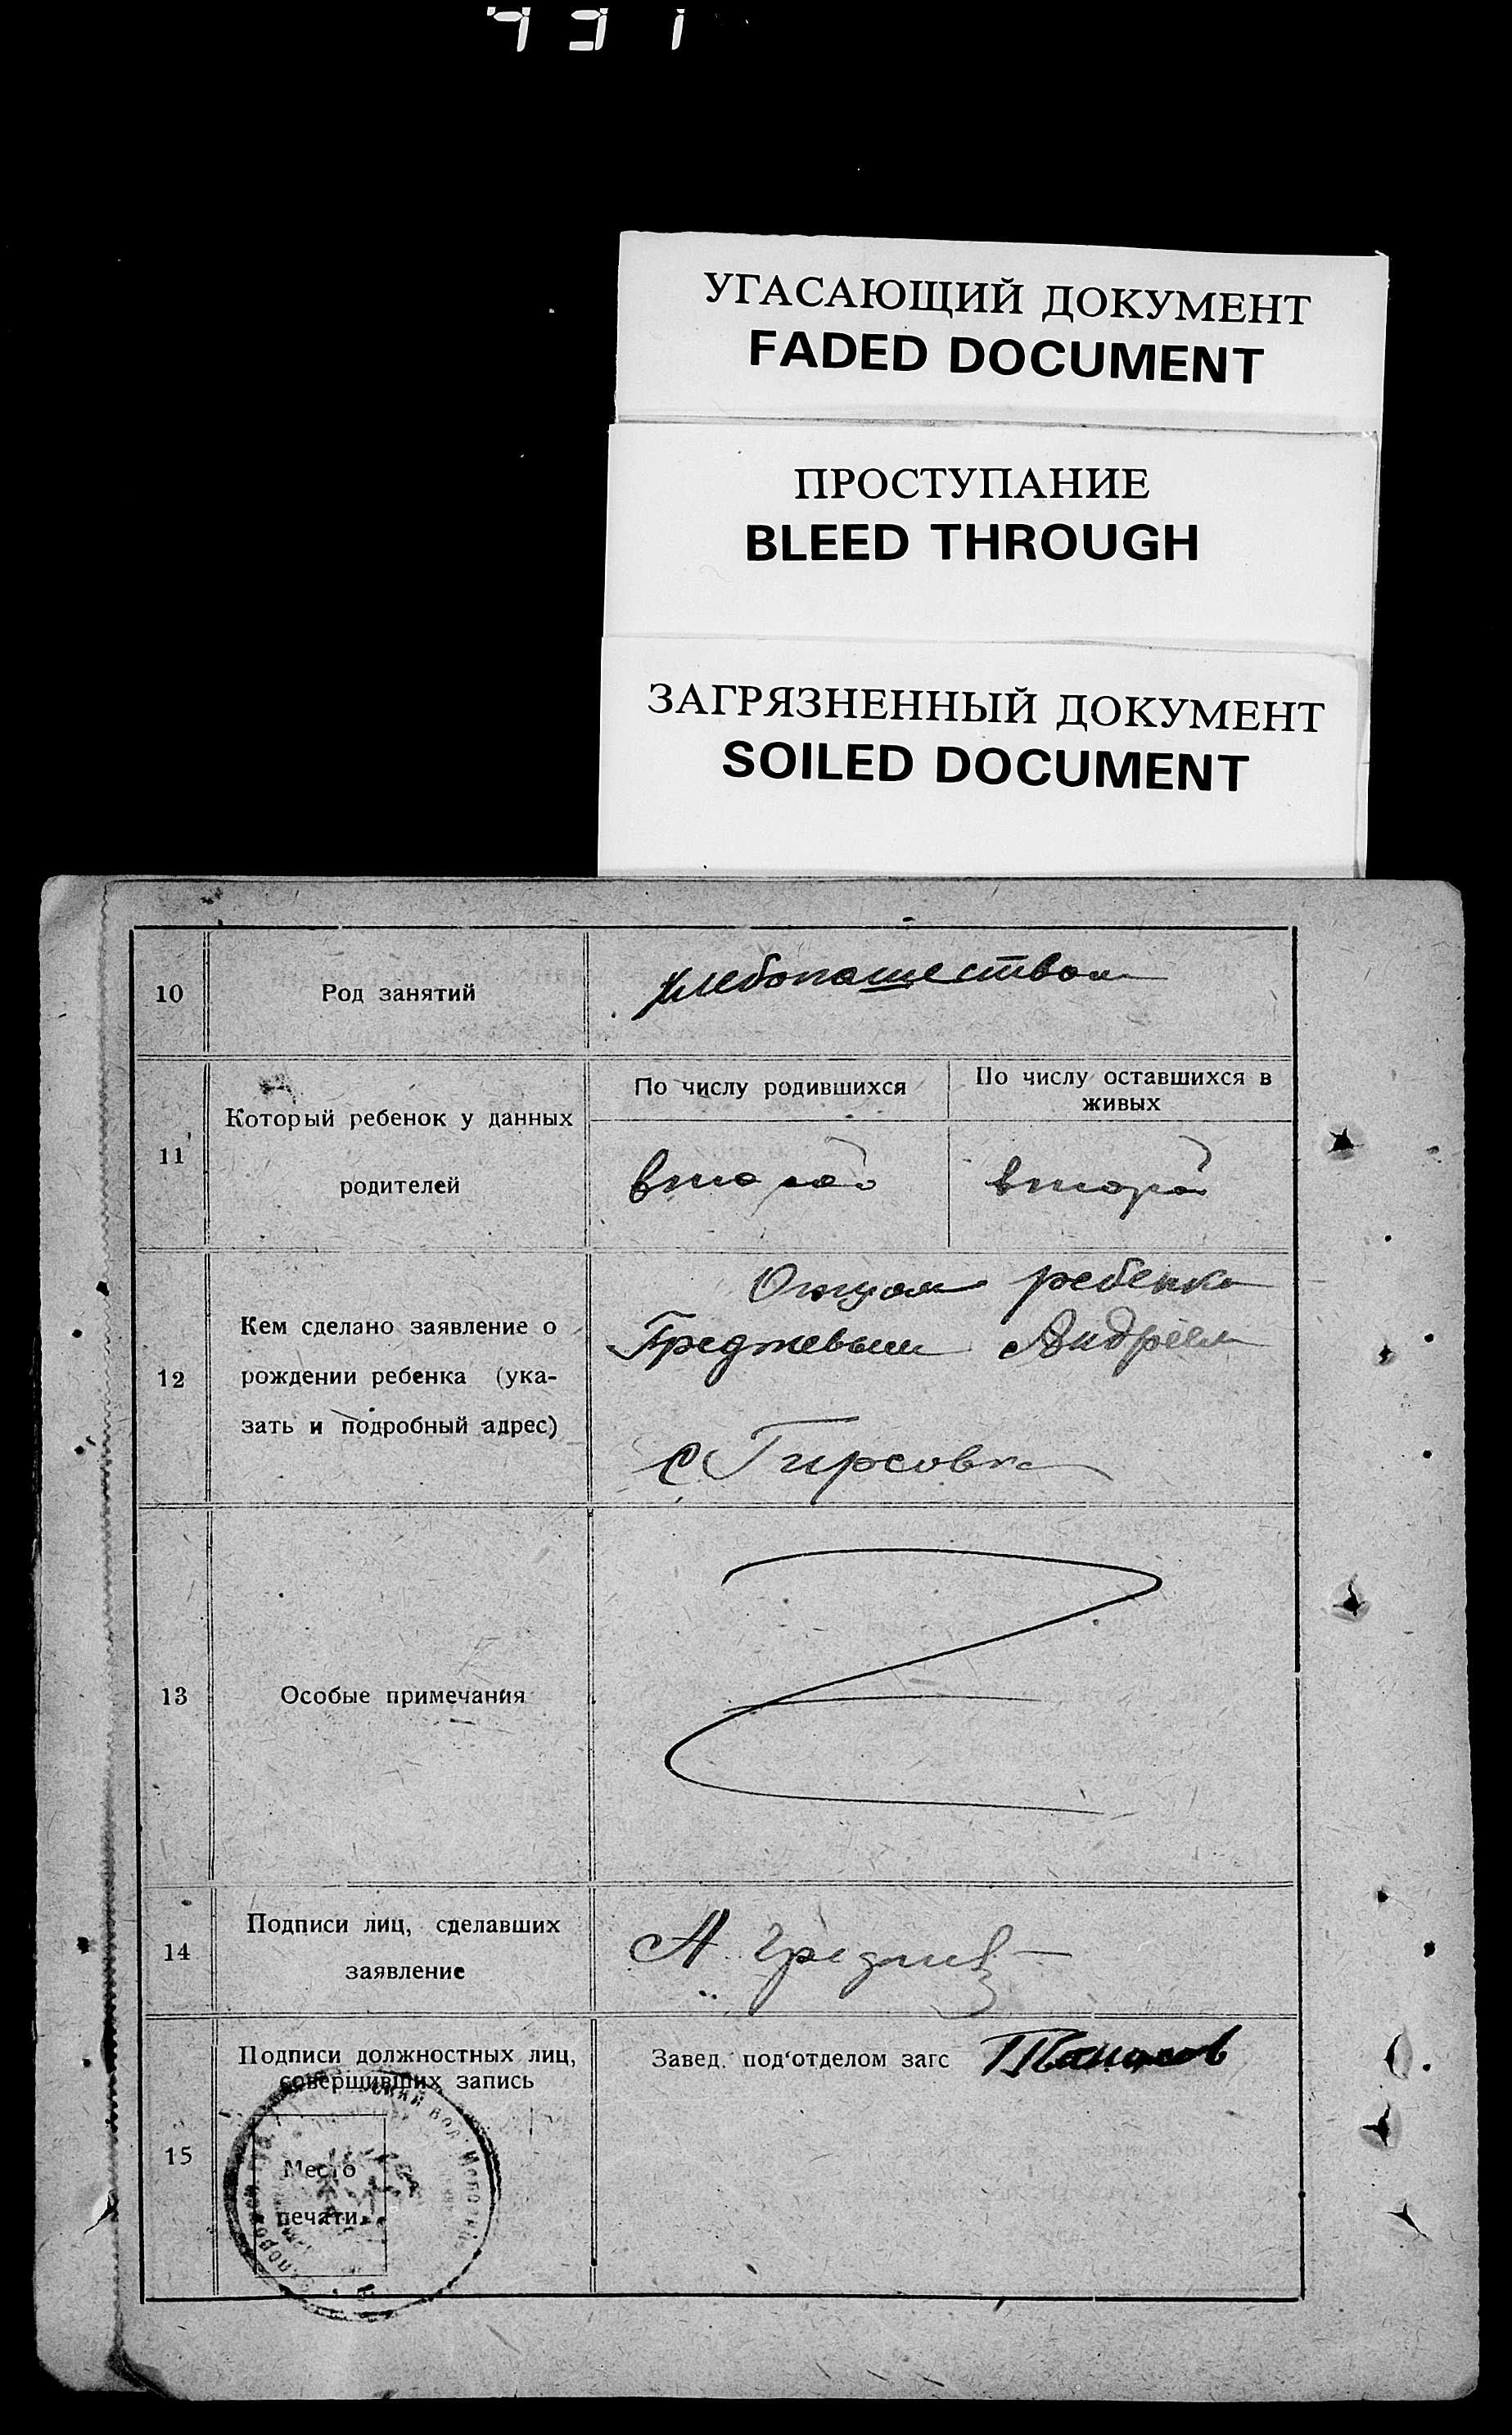 УГАСАЮЩИЙ ДОКУМЕНТ
FADED DOCUMENT
ПРОСТУПАНИЕ
BLEED THROUGH
ЗАГРЯЗНЕННЫЙ ДОКУМЕНТ
SOILED DOCUMENT
10 Род занятий хлебопашеством
11 Который ребенок у данных родителей
По числу родившихся
По числу оставшихся в живых
второй второй
12 Кем сделано заявление о
рождении ребенка (ука-
зать и подробный адрес)
Отцом ребенка
Греджевым Андреем
с. Гирсовка
13 Особые примечания
14 Подписи лиц, сделавших
заявление
А. Греджев
15 Подписи должностных лиц,
совершивших запись
Завед. под'отделом загс
Место
печати